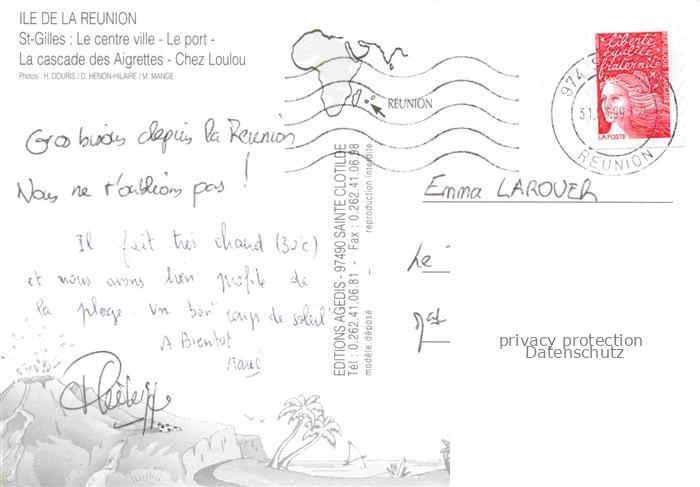 ILE DE LA REUNION
St-Gilles : Le centre ville - Le port -
La cascade des Aigrettes - Chez Loulou
Photos : H. DOURIS / D. HENON-HILAIRE / M. MANGE
REUNION
liberté
égalité
fraternité
LA POSTE
974
REUNION
Gros bisous depuis la Réunion
Nous ne t'oublions pas !
Il fait très chaud (30°C)
et nous avons bien profité de
la plage. Un bon "coup de soleil"
A Bientôt
Philippe
EDITIONS AGEDIS - 97490 SAINTE CLOTILDE
Tél : 0.262.41.06.81 - Fax : 0.262.41.06.98
modèle déposé - reproduction interdite
Emma LAROUER
Le
privacy protection
Datenschutz